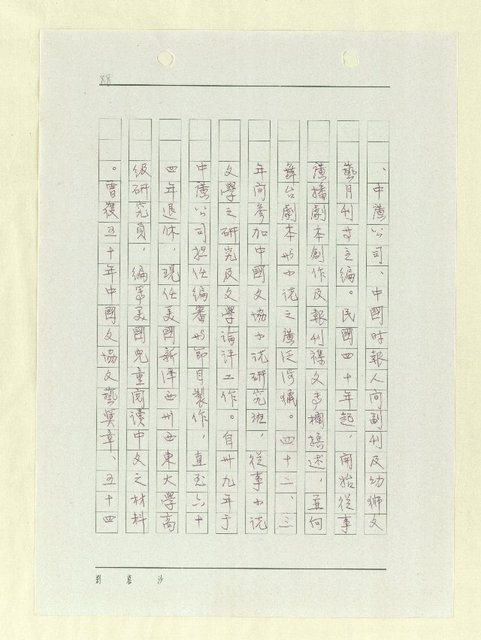 、中廣公司、中國時報人間副刊及幼獅文
藝月刊主編。民國四十年起，開始從事
廣播劇本創作及報刊雜文專欄撰述，並向
舞台劇本與小說之廣泛。四十二、三
年間參加中國文協小說研究班，從事小說
文學之研究及文學論評工作。自卅九年于
中廣公司担任編審與節目製作，直至六十
四年退休，現任美國新澤西州西東大學高
級研究員，編寫美國兒童閱讀中文之材料
。曾獲五十年中國文協文藝獎章、五十四
劉慕沙